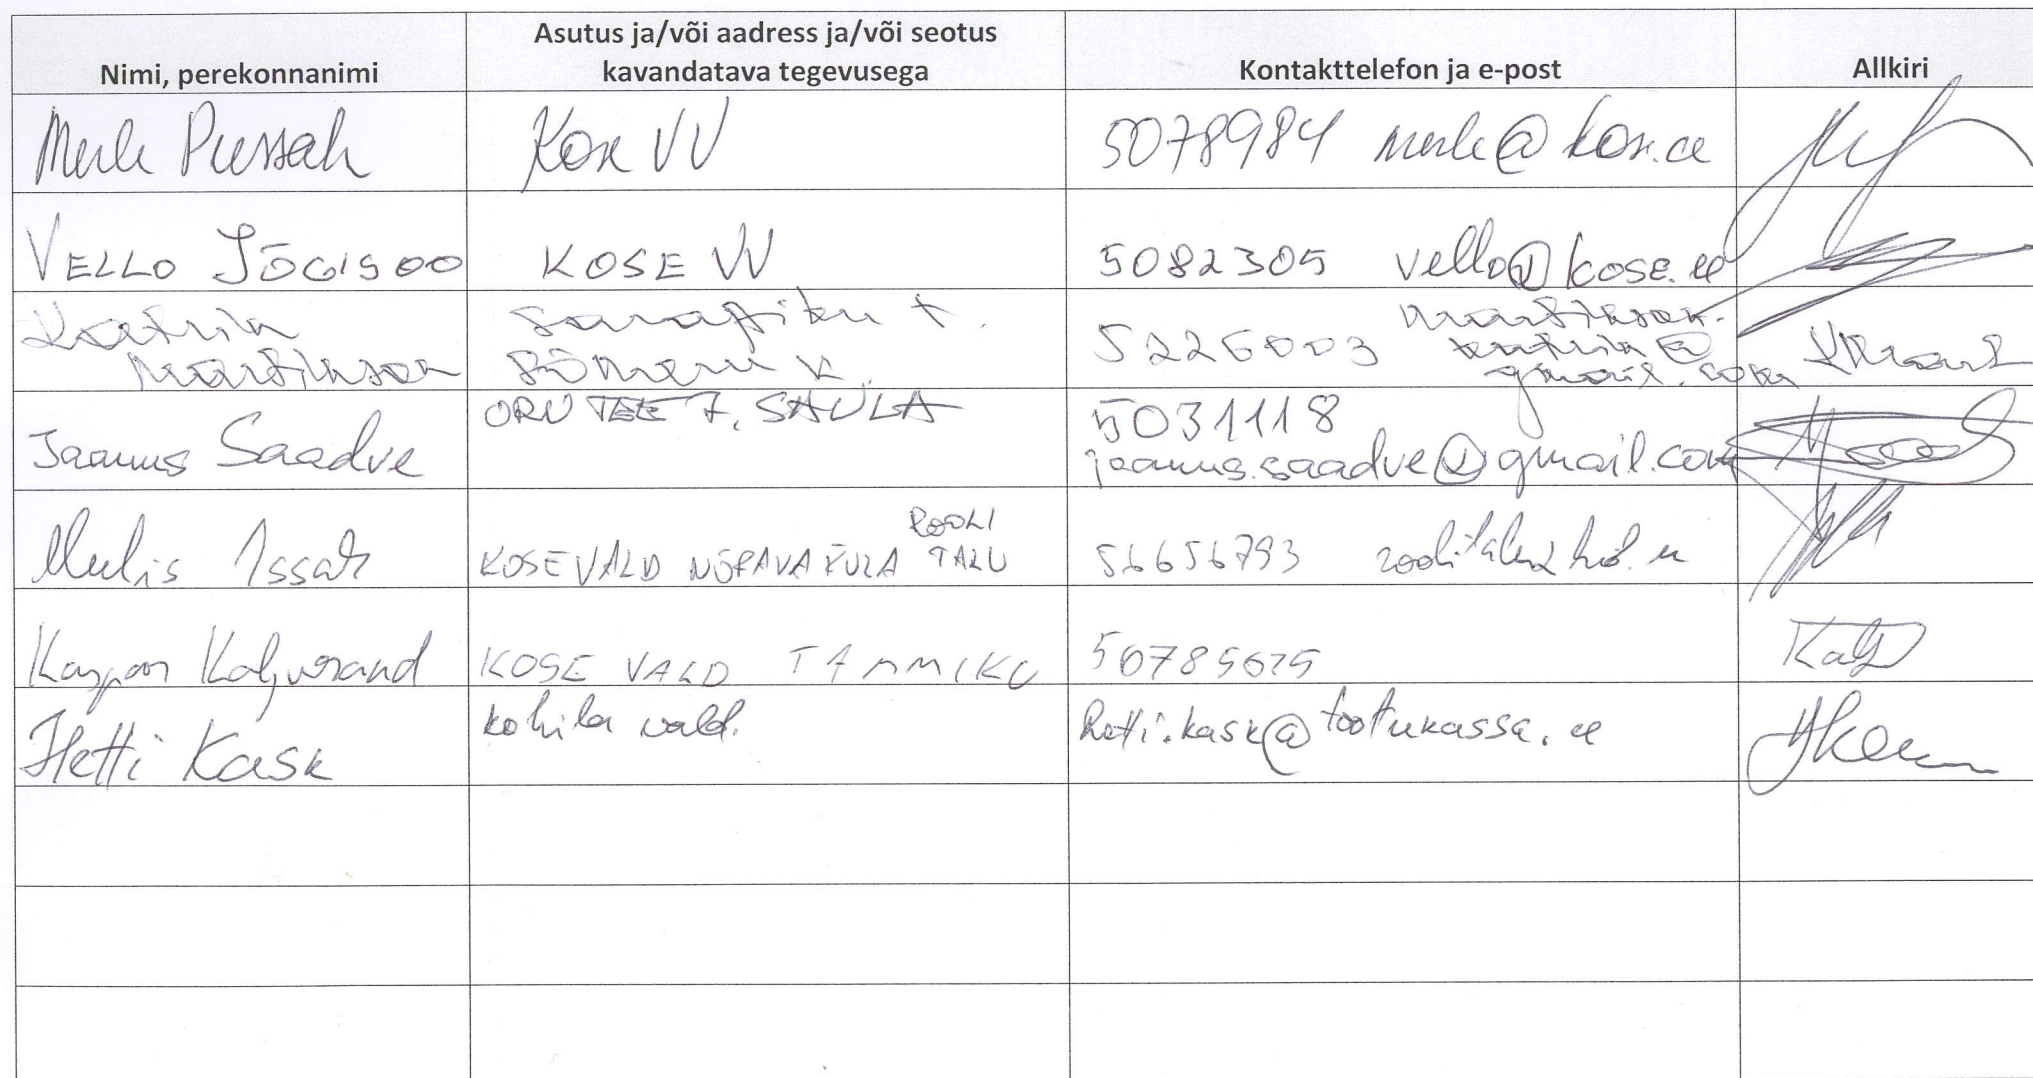 Nimi, perekonnanimi
Asutus ja/või aadress ja/või seotus
kavandatava tegevusega
Kontakttelefon ja e-post
Allkiri
Merle Pussak Kose VV 5078984 merle@kose.ee
VELLO JÕGISOO KOSE VV 5082305 vello@kose.ee
Katrin
Martinson
Sarapiku t.
Sõmeru k.
5226003
martinson.
katrin@
gmail.com
Jaanus Saadve
ORU TEE 7, SAULA
5031118
jaanus.saadve@gmail.com
Issak
KOSE VALD NÕRAVA KÜLA
ROOLI
TALU
56656793
Kaspar Kaljurand KOSE VALD TAMMIKU
Hetti Kask
Kohila vald.
hetti.kask@tootukassa.ee